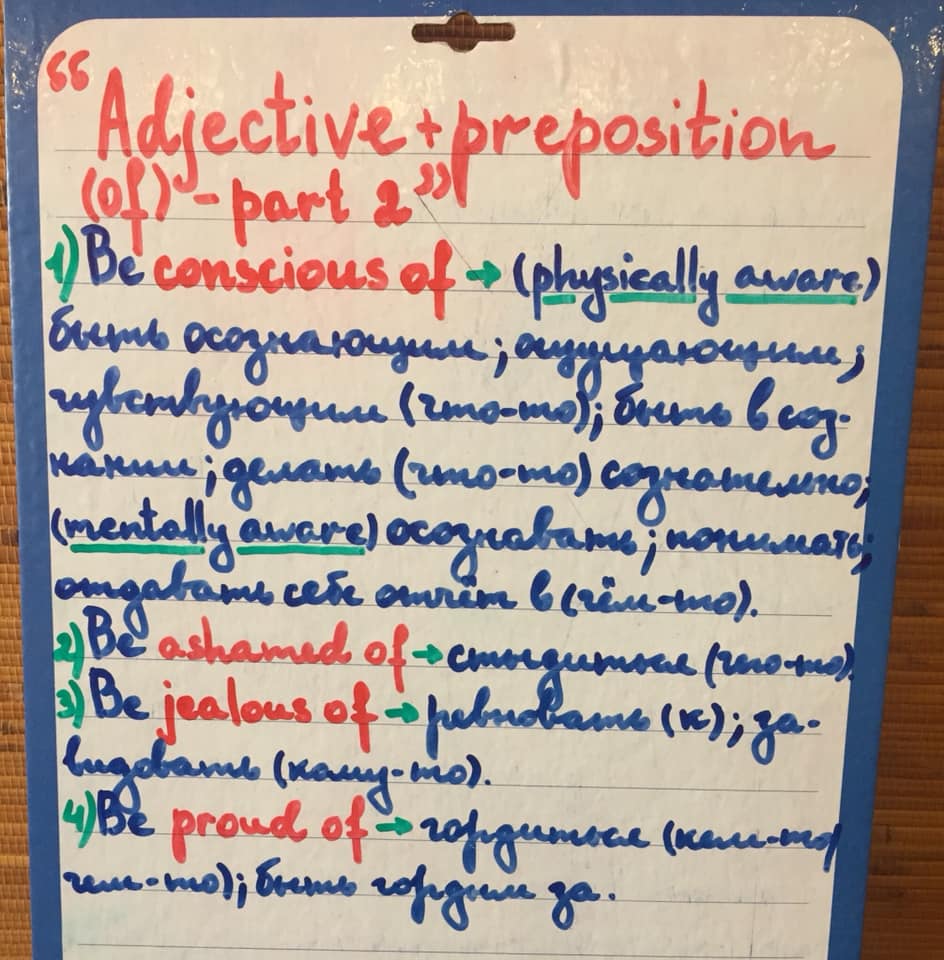 “Adjective + preposition
(of) - part 2”
1) Be conscious of → (physically aware)
быть осознающим; ощущающим;
чувствующим (что-то); быть в соз-
нании; делать (что-то) сознательно;
(mentally aware) осознавать; понимать;
отдавать себе отчёт в (чём-то).
2) Be ashamed of → стыдиться (чего-то).
3) Be jealous of → ревновать (к); за-
видовать (кому-то).
4) Be proud of → гордиться (кем-то/
чем-то); быть гордым за.